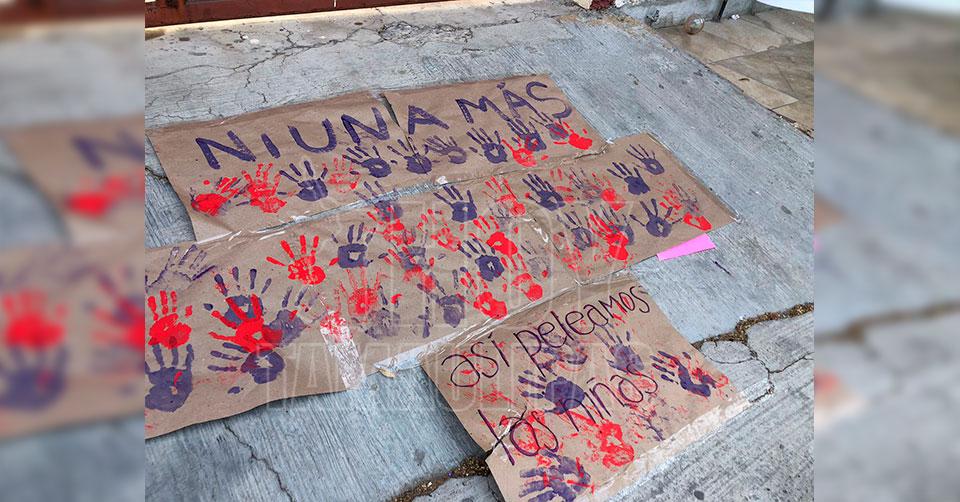 NI UNA MÁS
asi peleamos
las niñas